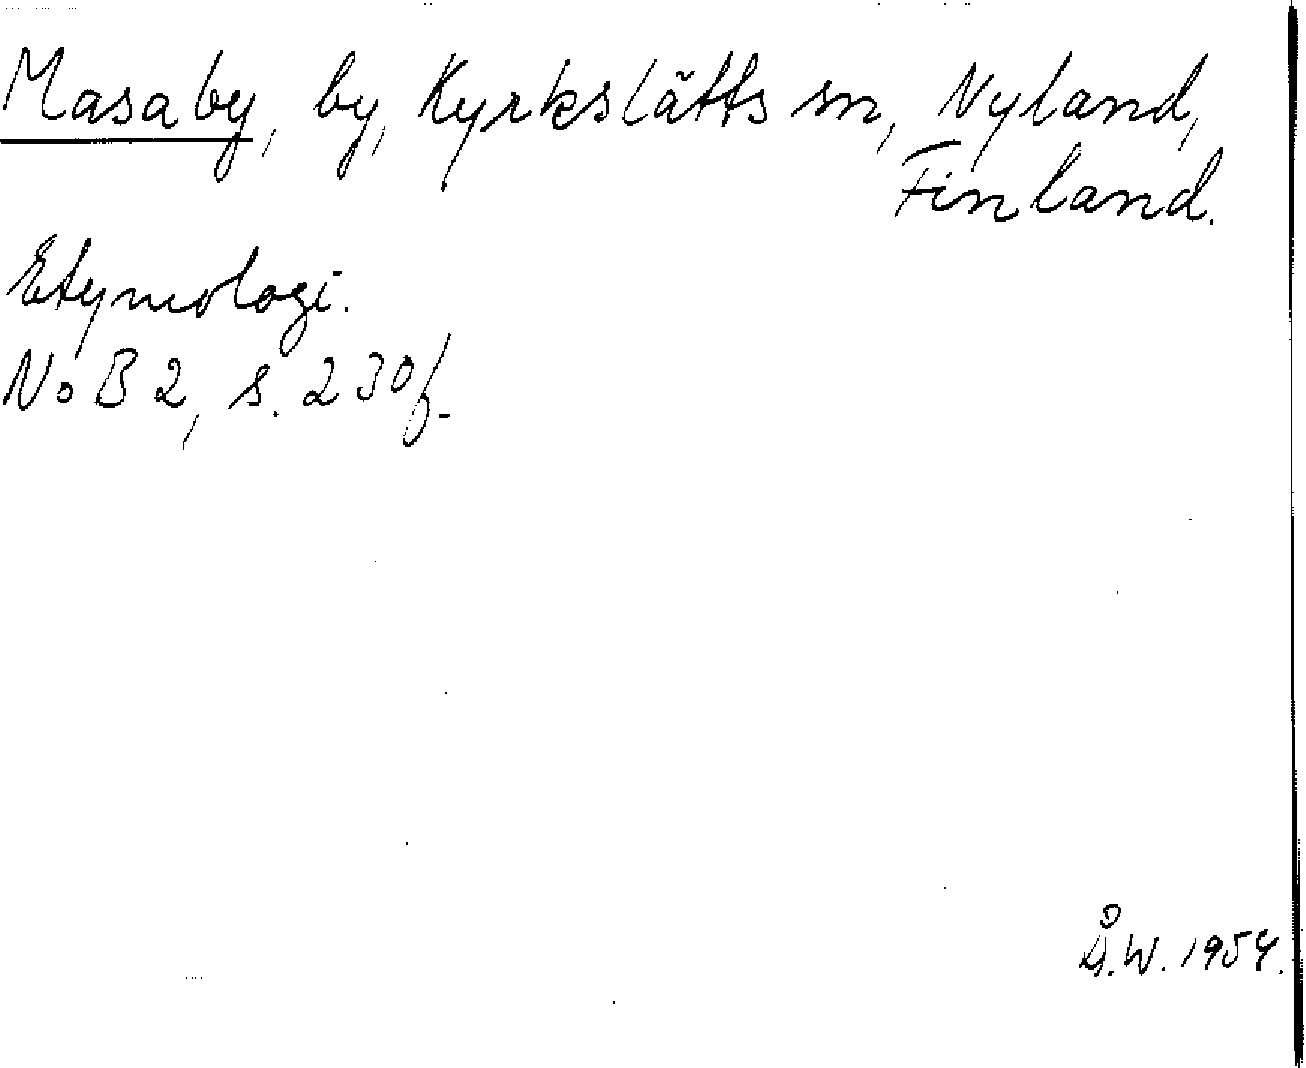 Masaby, by, Kyrkslätts sn, Nyland,
Finland.
Etymologi.
NoB 2, s. 230 f.
Å.W. 1954.